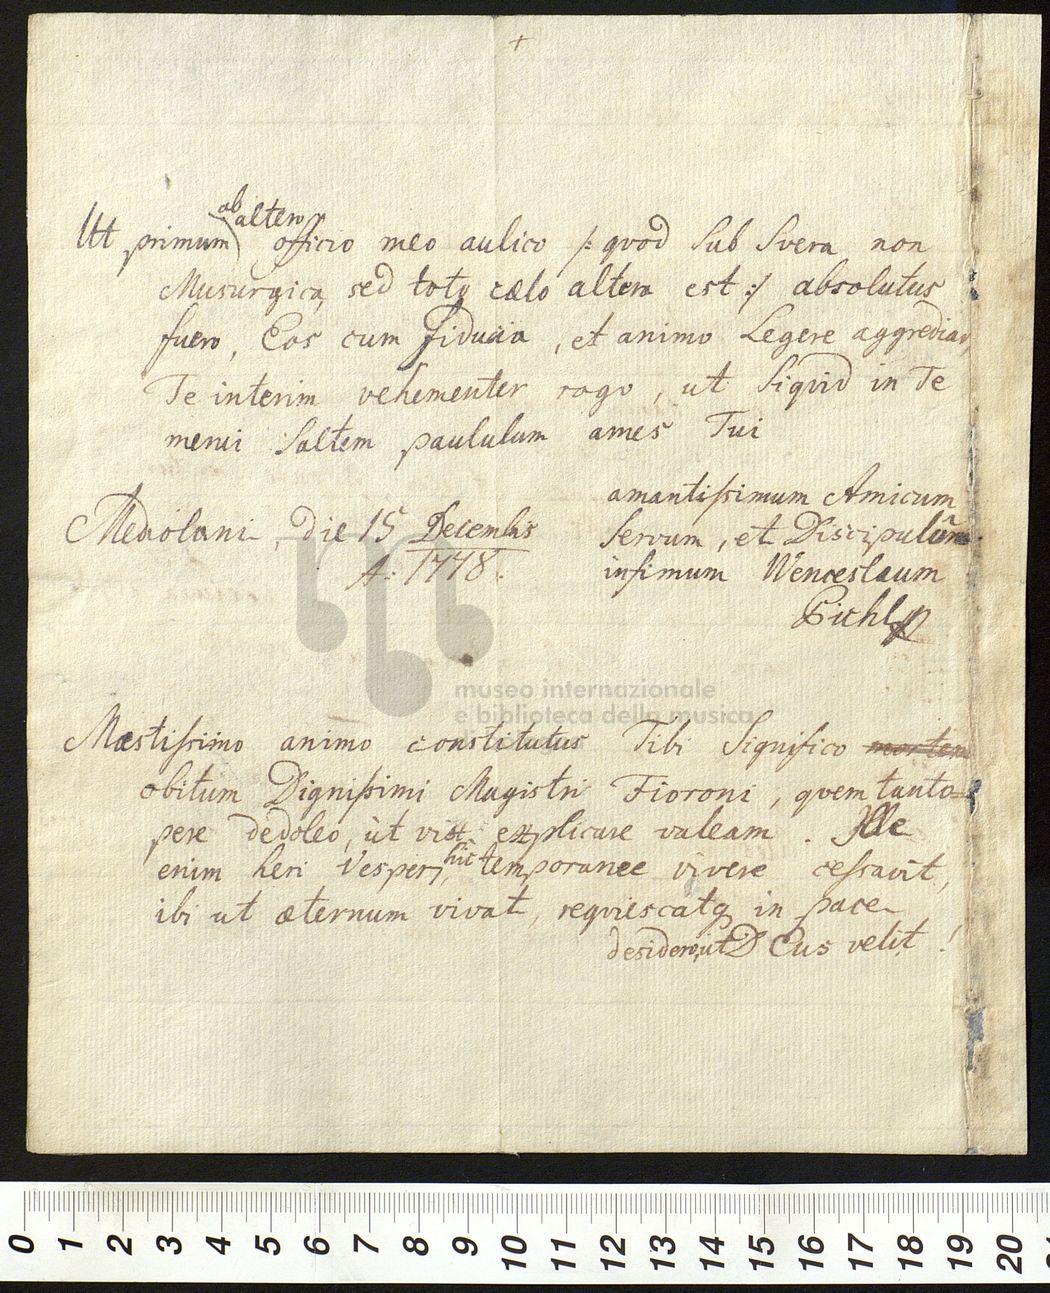 +
Ut primum ab altero officio meo aulico /: quod sub Svera non
Musurgica, sed toty cælo altera est :/ absolutus
fuero, Eos cum fiducia, et animo Legere aggrediar,
Te interim vehementer rogo, ut siquid in Te
merui saltem paululum ames Tui
amantissimum Amicum
Mediolani, die 15 Decembris
servum, et Discipulum
A: 1778.
infimum Wenceslaum
Pichl
museo internazionale
e biblioteca della musica
Mæstissimo animo constitutus Tibi Significo mortem
obitum Dignissimi Magistri Fioroni, quem tanto=
pere dedoleo, ùt vix explicare valeam. Ille
enim heri Vesperi, hic temporanee vivere cessavit,
ibi ut æternum vivat, requiescatq in pace
desidero, ut DEus velit!
0 1 2 3 4 5 6 7 8 9 10 11 12 13 14 15 16 17 18 19 20